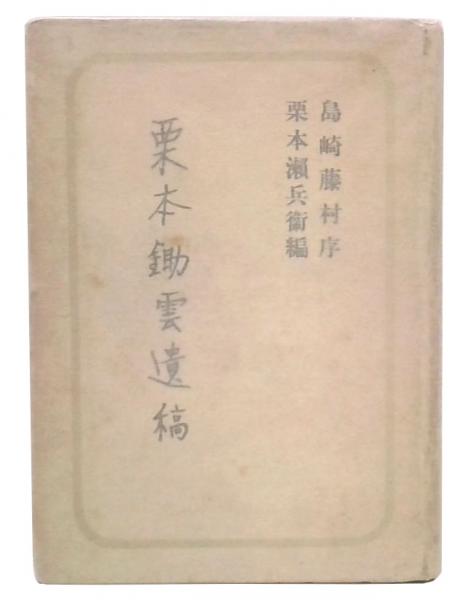 島崎藤村序
栗本瀬兵衛編
栗本鋤雲遺稿